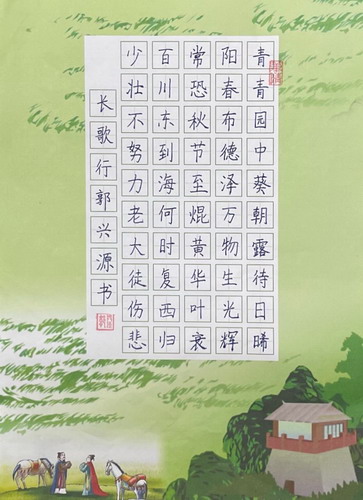 青青园中葵朝露待日晞
阳春布德泽万物生光辉
常恐秋节至焜黄华叶衰
百川东到海何时复西归
少壮不努力老大徒伤悲
长歌行郭兴源书